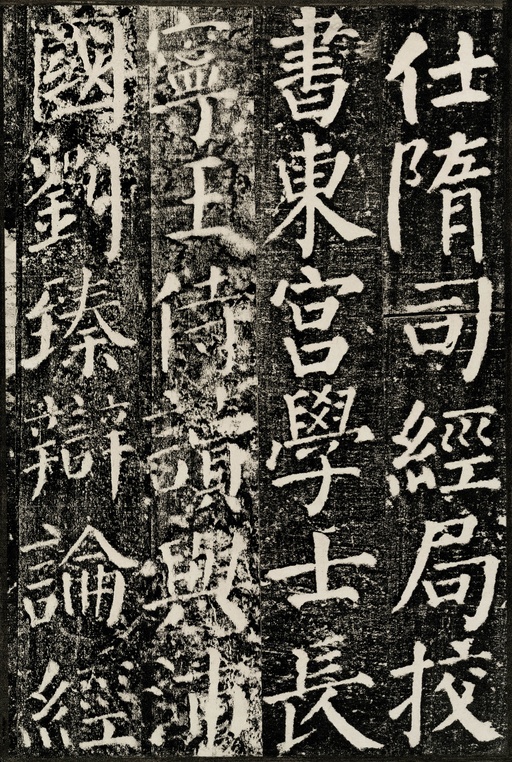 仕隋司經局挍
書東宮學士長
寧王侍讀與沛
國劉臻辯論經